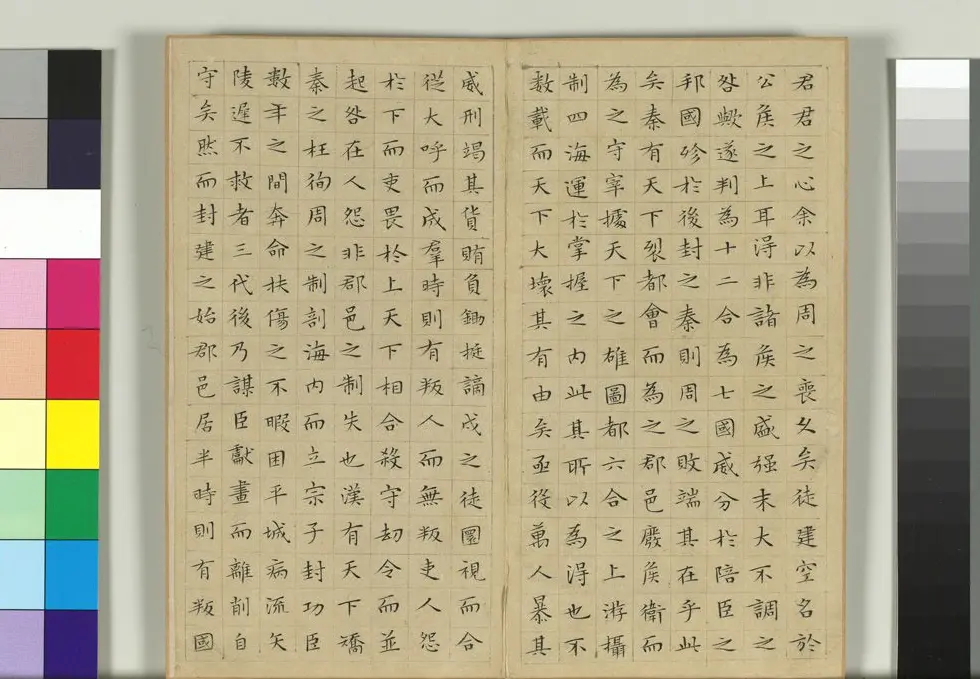 君君之心余以為周之喪久矣徒建空名於
公侯之上耳得非諸侯之盛强末大不調之
咎歟遂判為十二合為七國威分於陪臣之
邦國殄於後封之秦則周之敗端其在乎此
矣秦有天下裂都會而為之郡邑廢侯衛而
為之守宰據天下之雄圖都六合之上游攝
制四海運於掌握之内此其所以為得也不
数載而天下大壞其有由矣亟役萬人暴其
威刑竭其貨賄負鋤挺謫戍之徒圜視而合
從大呼而成羣時則有叛人而無叛吏人怨
於下而吏畏於上天下相合殺守劫令而並
起咎在人怨非郡邑之制失也漢有天下矯
秦之枉徇周之制剖海内而立宗子封功臣
數年之間奔命扶傷之不暇困平城病流矢
陵遲不救者三代後乃謀臣獻畫而離削自
守矣然而封建之始郡邑居半時則有叛國